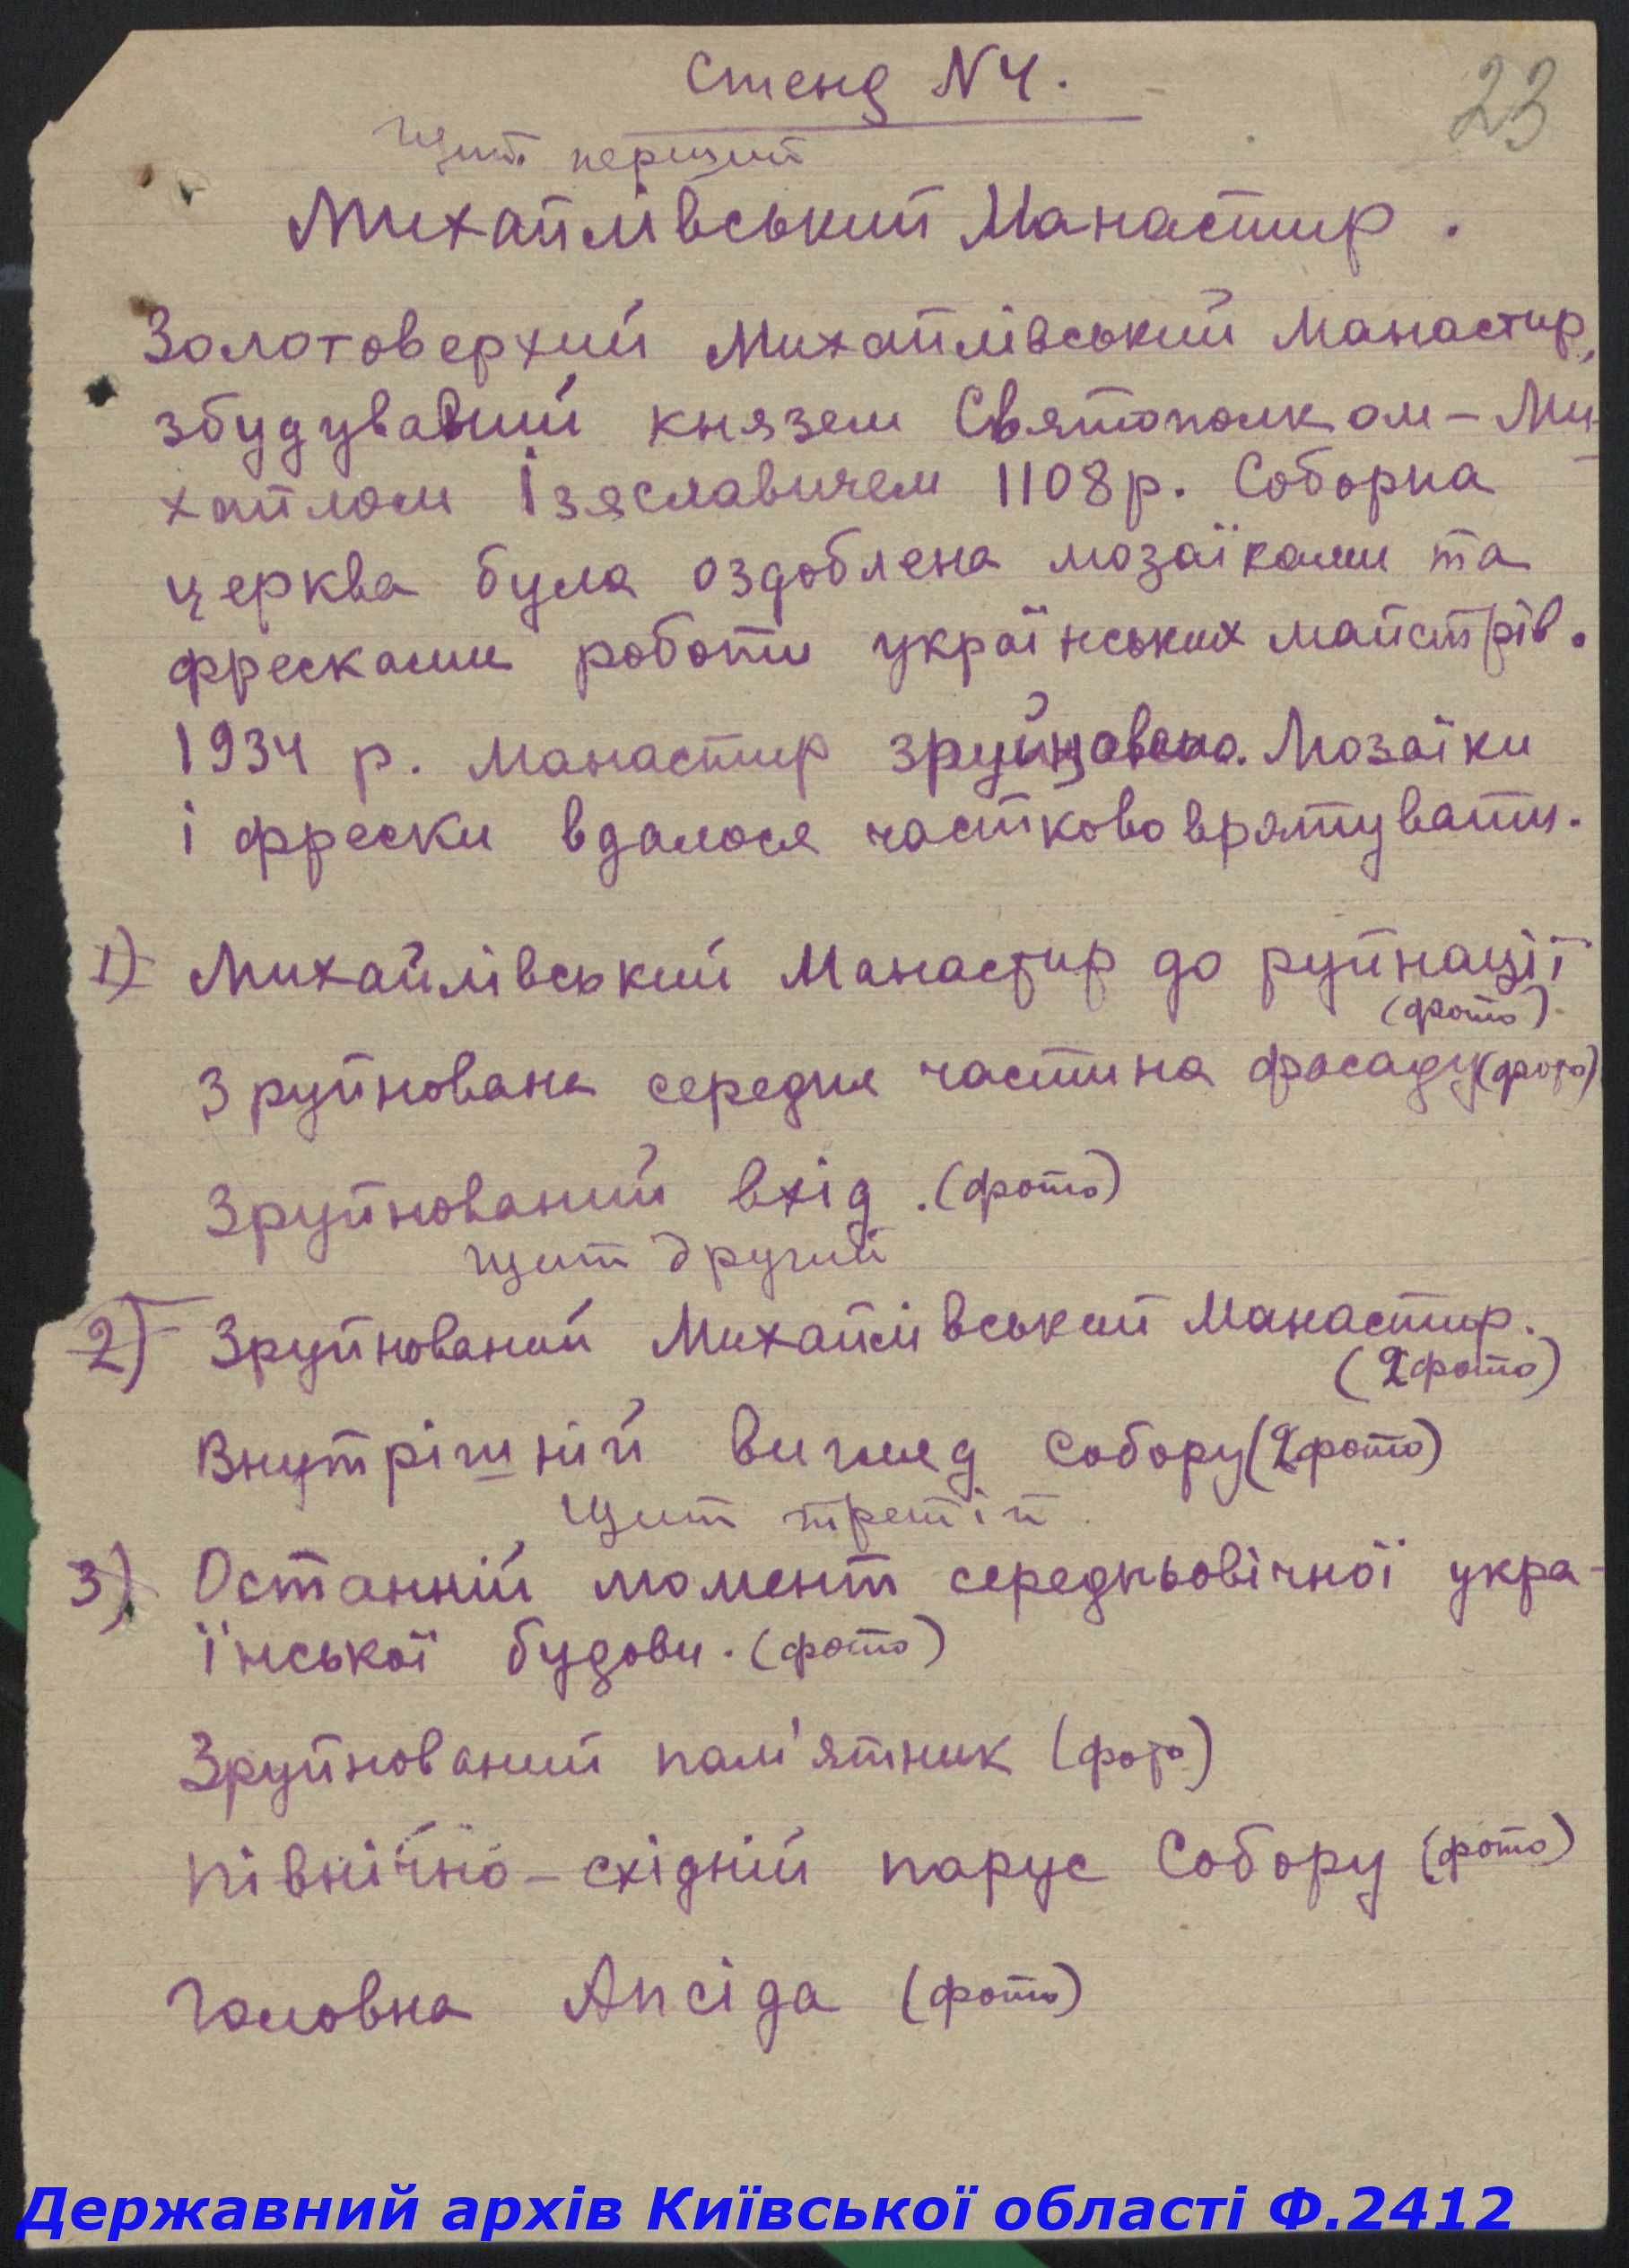 Стенд N 4.
23
Щит перший
Михайлівський Манастир.
Золотоверхий Михайлівський Манастир,
збудуваний князем Святополком-Ми-
хайлом Ізяславичем 1108 р. Соборна
церква була оздоблена мозаїками та
фресками роботи українських майстрів.
1934 р. манастир зруйновано. Мозаїки
і фрески вдалося частково врятувати.
1) Михайлівський Манастир до руйнації
(фото).
Зруйнована середня частина фасаду (фото)
Зруйнований вхід. (фото)
Щит другий
2) Зруйнований Михайлівський Манастир.
(2 фото)
Внутрішній вигляд собору (2 фото)
Щит третій
3) Останній момент середньовічної укра-
їнської будови. (фото)
Зруйнований пам'ятник (фото)
Північно-східній парус Собору (фото)
Головна Апсіда (фото)
Державний архів Київської області Ф.2412